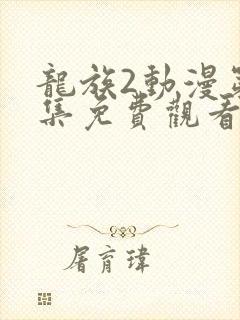 龍族2動漫第
集免費觀看
屠育瑋